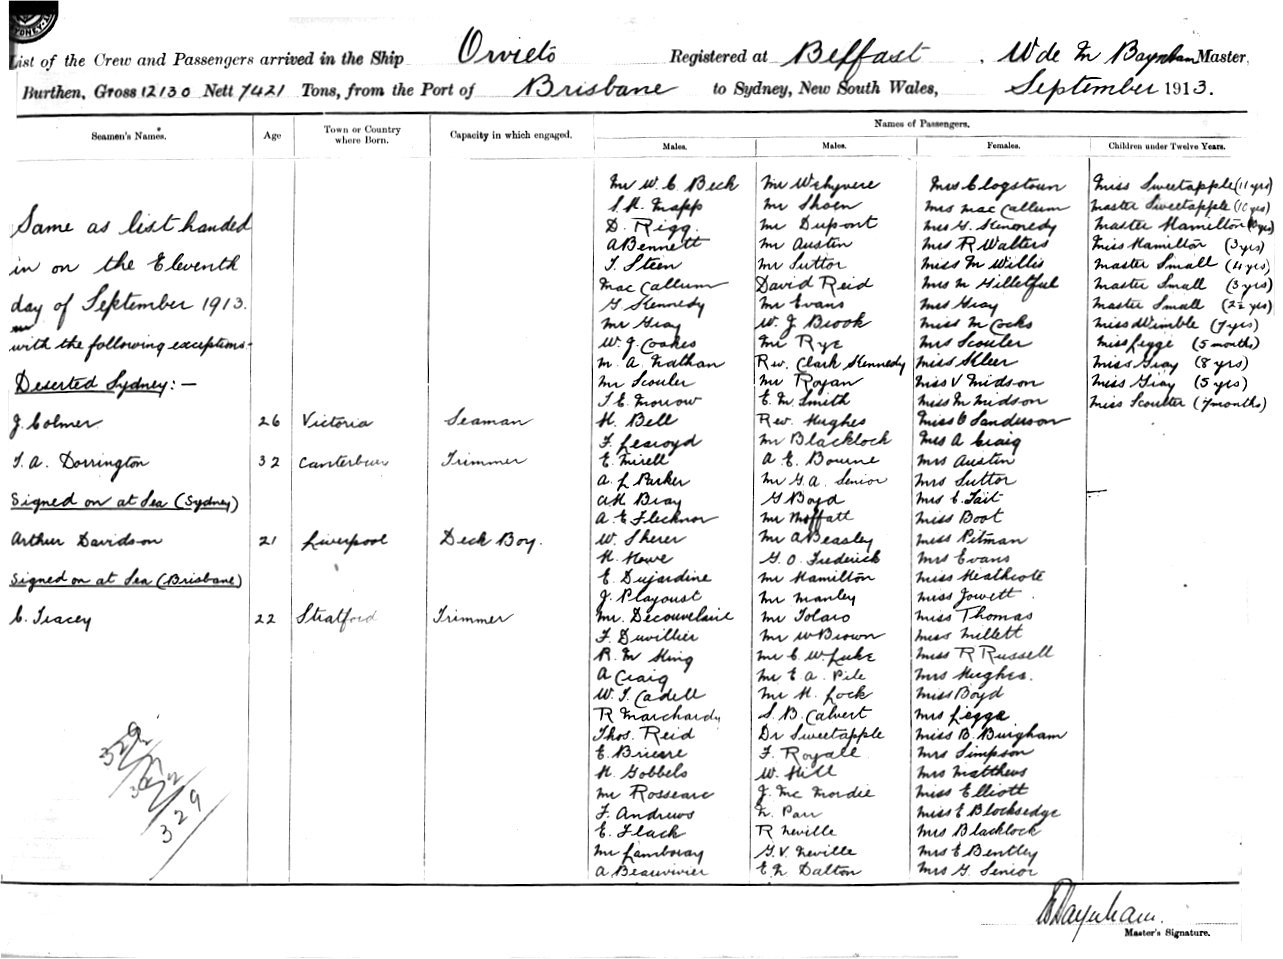 List of the Crew and Passengers arrived in the Ship Orvieto Registered at Belfast, W de M Baynham Master,
Burthen, Gross 12130 Nett 7421 Tons, from the Port of Brisbane to Sydney, New South Wales, September 1913.
Seamen's Names. Age Town or Country where Born. Capacity in which engaged. Names of Passengers.
Males. Males. Females. Children under Twelve Years.
Same as list handed
in on the Eleventh
day of September 1913.
with the following exceptions-
Deserted Sydney:-
J. Colmer 26 Victoria Seaman
T. A. Dorrington 32 Canterbury Trimmer
Signed on at Sea (Sydney)
Arthur Davidson 21 Liverpool Deck Boy.
Signed on at Sea (Brisbane)
C. Tracey 22 Stratford Trimmer
329
329
Mr W. C. Beck
S. H. Mapp
D. Rigg
A Bennett
T. Steen
Mac Callum
G Kennedy
Mr Gray
W. J. Coakes
M. A. Nathan
Mr Scouler
T. E. Morrow
H. Bell
F. Learoyd
E. Mirell
A. L Parker
AH Bray
A. E Flecknor
W. Sherer
H. Howe
E. Dujardine
J. Playoust
Mr. Decouvelaire
F. Duvillier
R. M King
A Craig
W. T. Cadell
R Marchardy
Thos. Reid
E. Briere
H. Gobbels
Mr Rossearc
F. Andrews
E. Flack
Mr Lamboray
A Beauvivier
Mr Wehyvere
Mr Shoen
Mr Dupont
Mr Austen
Mr Suttor
David Reid
Mr Evans
W. J. Brook
Mr Rye
Rev. Clark Kennedy
Mr Royan
E. M. Smith
Rev. Hughes
Mr Blacklock
A. E. Bourne
Mr G. A. Senior
G Boyd
Mr Moffatt
Mr A Beasley
G. O. Frederick
Mr Hamilton
Mr Manley
Mr Tolaro
Mr W Brown
Mr C. W. Luke
Mr E. A. Pile
Mr H. Lock
S. B. Calvert
Dr Sweetapple
F. Royall
W. Hill
J. Mc Mordie
N. Parr
R Neville
G. V. Neville
E. N Dalton
Mrs Clogstoun
Mrs Mac Callum
Mrs G. Kennedy
Mrs R Walters
Miss M Willis
Mrs M Gilletful
Mrs Gray
Miss M Cocks
Mrs Scouler
Miss Kleer
Miss V Midson
Miss M Midson
Miss O Sanderson
Mrs A Craig
Mrs Austin
Mrs Suttor
Mrs E. Tait
Miss Boot
Miss Pitman
Mrs Evans
Miss Heathcote
Miss Jowett
Miss Thomas
Miss Millett
Miss R Russell
Mrs Hughes.
Miss Boyd
Mrs Legge
Miss B. Bingham
Mrs Simpson
Mrs Matthews
Miss Elliott
Miss E Blocksedge
Mrs Blacklock
Mrs E Bentley
Mrs G. Senior
Miss Sweetapple (11 yrs)
Master Sweetapple (10 yrs)
Master Hamilton
Miss Hamilton (3 yrs)
Master Small (4 yrs)
Master Small (3 yrs)
Master Small (2½ yrs)
Miss Wimble (7 yrs)
Miss Legge (5 months)
Miss Gray (8 yrs)
Miss Gray (5 yrs)
Miss Scouler (7 months)
Baynham.
Master's Signature.